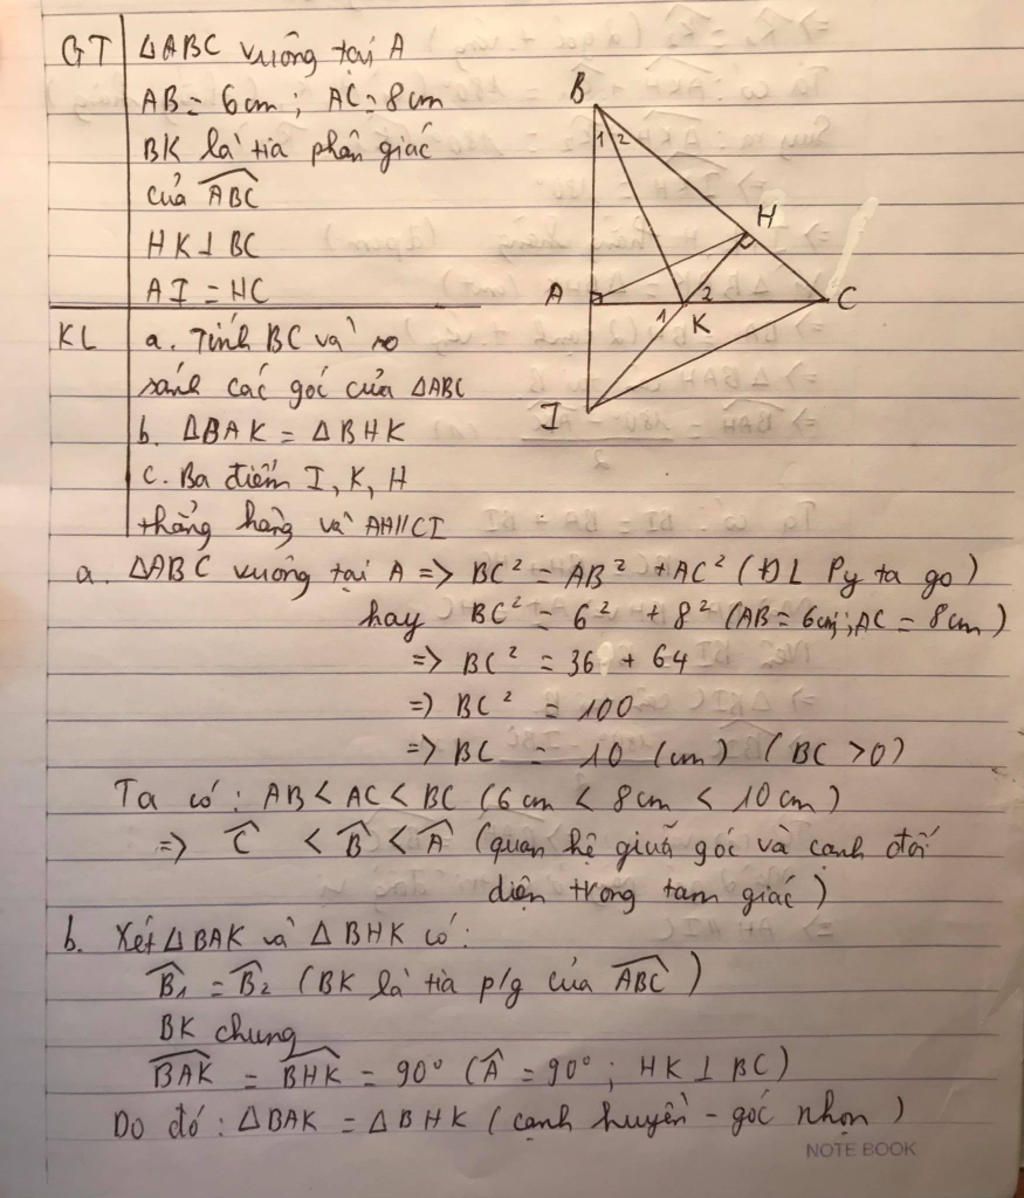 GT ΔABC vuông tại A
AB = 6cm ; AC = 8cm
BK là tia phân giác
của \widehat{ABC}
HK ⊥ BC
AI = HC
KL a. Tính BC và so
sánh các góc của ΔABC
b. ΔBAK = ΔBHK
c. Ba điểm I, K, H
thẳng hàng và AH // CI
B
1 2
H
A
2
C
1
K
I
a. ΔABC vuông tại A => BC² = AB² + AC² (ĐL Py ta go)
hay BC² = 6² + 8² (AB = 6cm; AC = 8cm)
=> BC² = 36 + 64
=> BC² = 100
=> BC = 10 (cm) (BC > 0)
Ta có : AB < AC < BC (6cm < 8cm < 10cm)
=> \widehat{C} < \widehat{B} < \widehat{A} (quan hệ giữa góc và cạnh đối
diện trong tam giác)
b. Xét ΔBAK và ΔBHK có:
\widehat{B}₁ = \widehat{B}₂ (BK là tia p/g của \widehat{ABC})
BK chung
\widehat{BAK} = \widehat{BHK} = 90° (\widehat{A} = 90° ; HK ⊥ BC)
Do đó : ΔBAK = ΔBHK (cạnh huyền - góc nhọn)
NOTE BOOK